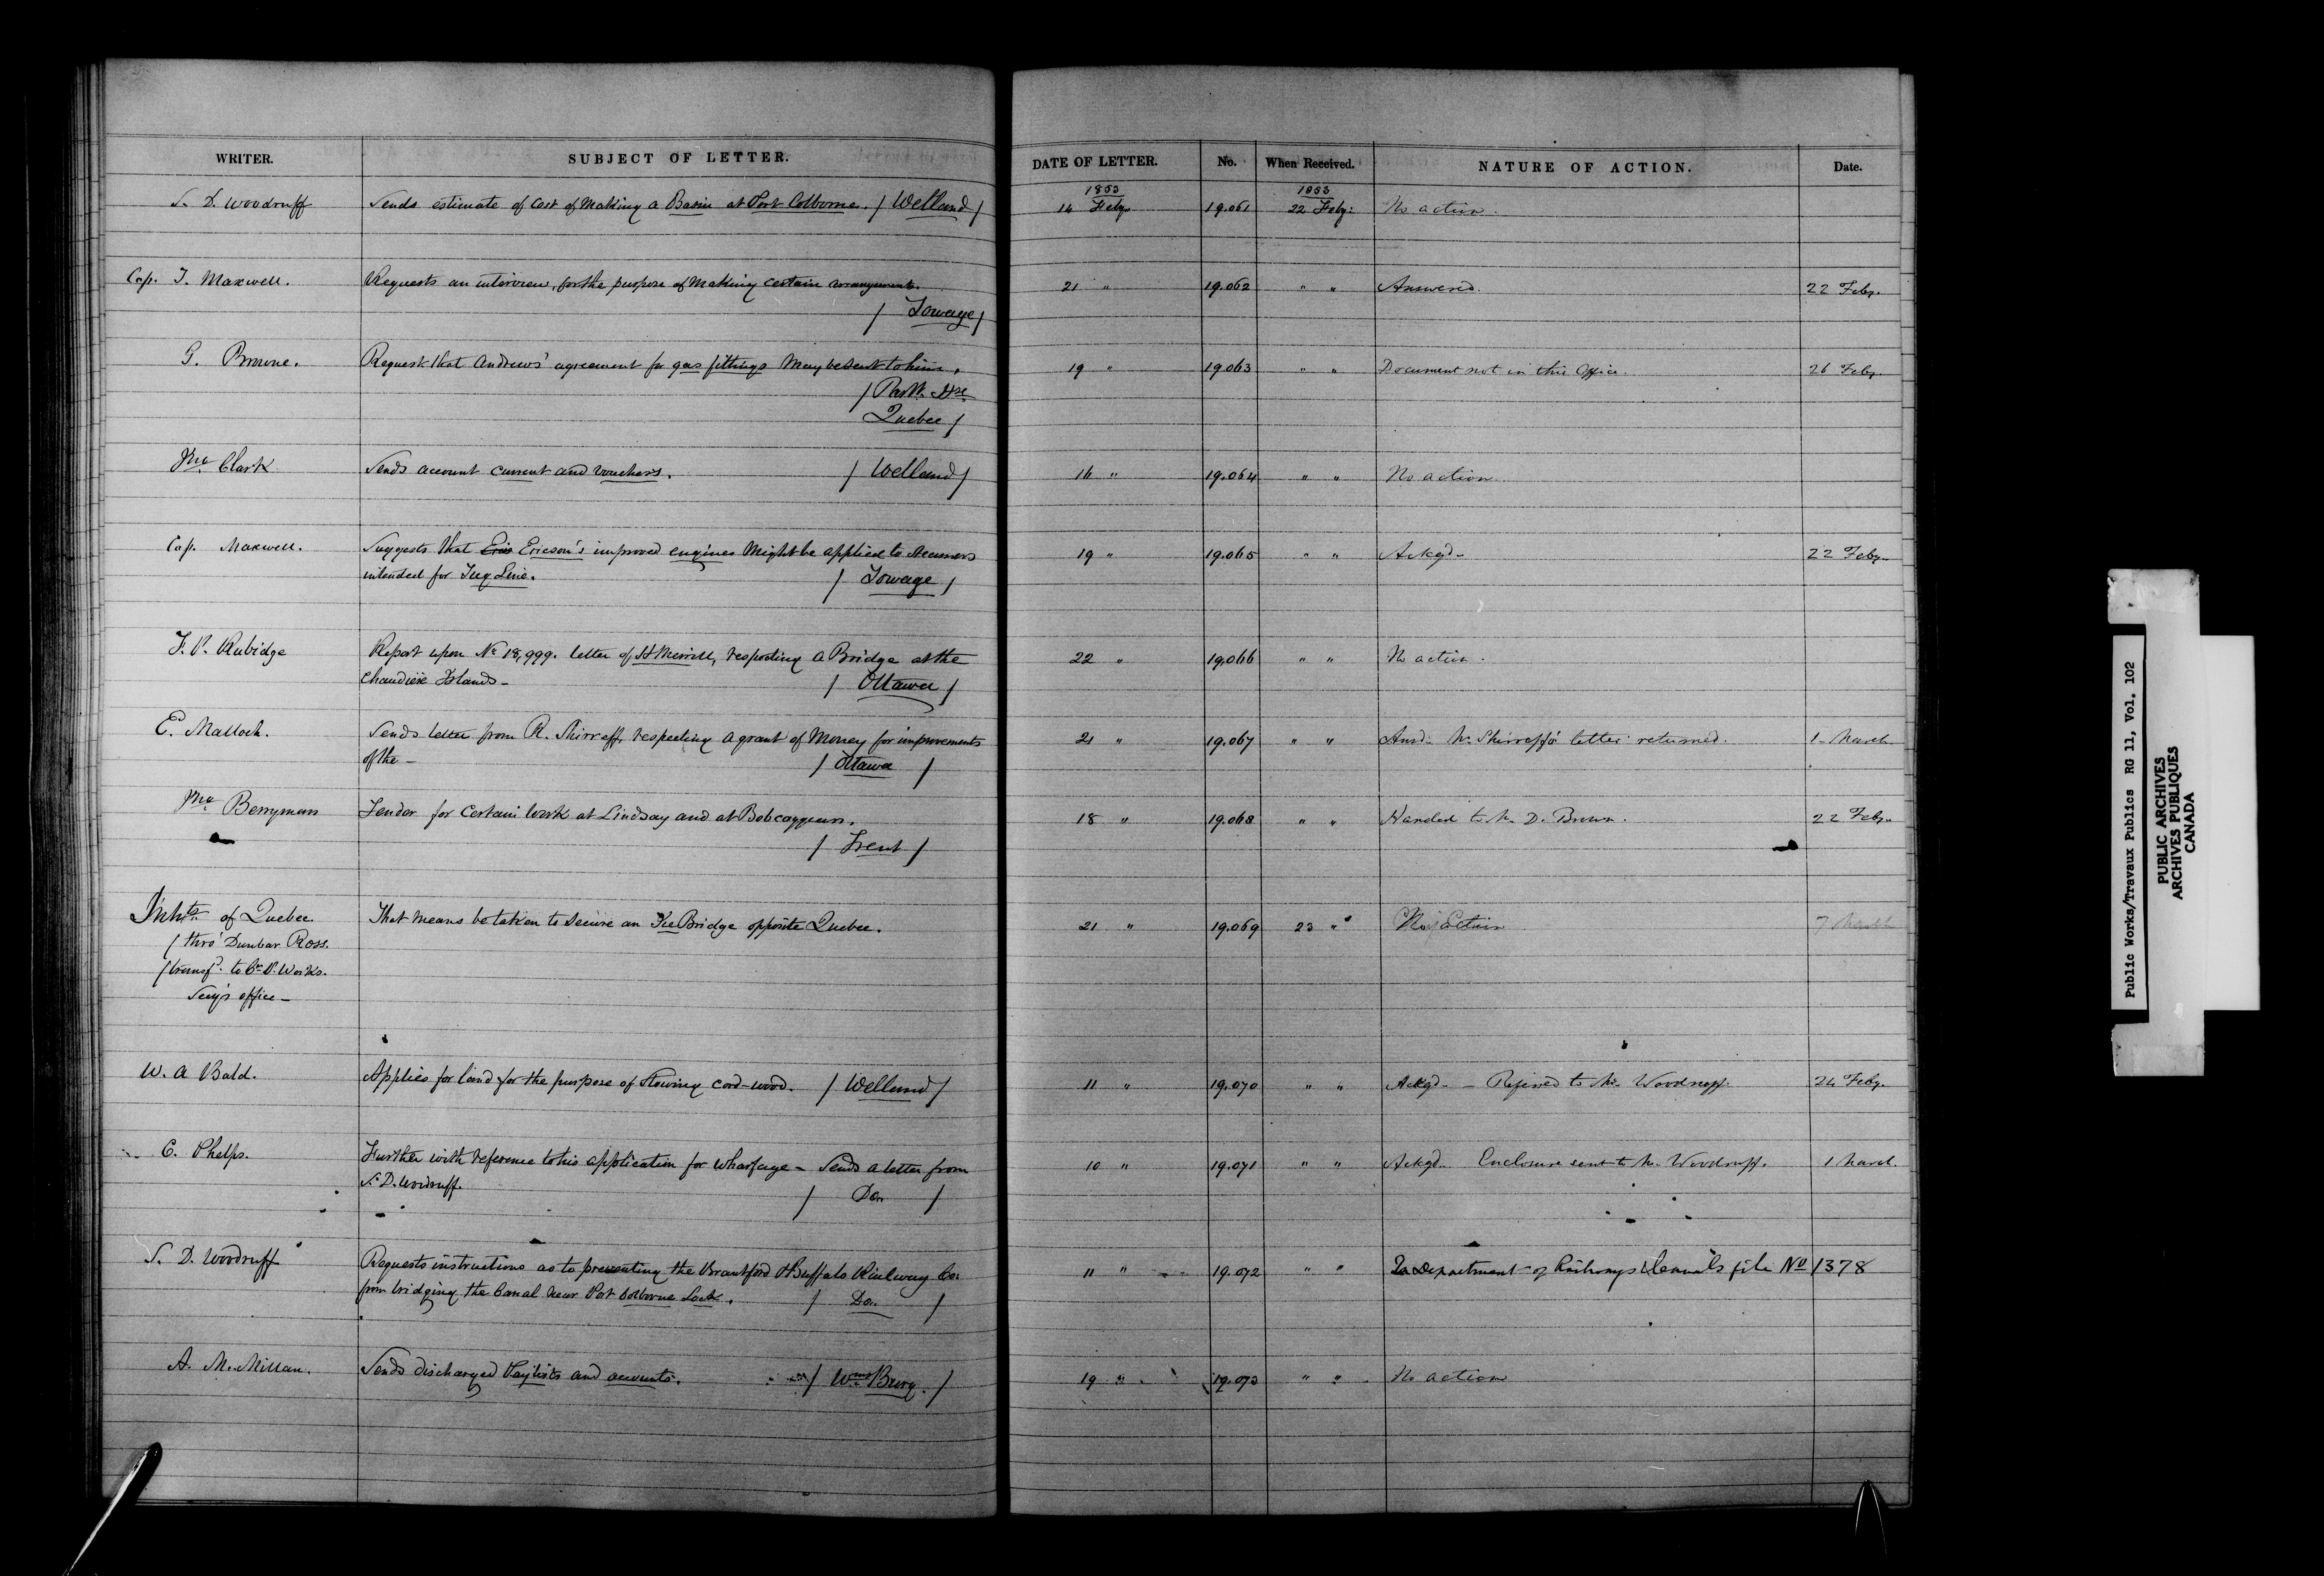 WRITER. SUBJECT OF LETTER. DATE OF LETTER. No. When Received. NATURE OF ACTION. Date.
1853 1853
S. D. Woodruff Sends estimate of Cost of Making a Basin at Port Colborne. / Welland / 14 Feby 19.061 22 Feby: No action.
Cap. T. Maxwell. Requests an interview, for the purpose of Making certain arrangements. 21 " 19.062 " " Answered. 22 Feby.
/ Towage /
G. Browne. Request that Andrews' agreement for gas fittings May be sent to him. 19 " 19.063 " " Document not in this Office. 26 Feby.
/ Parlt. Hse
Quebec /
Jno Clark Sends account current and vouchers. / Welland / 16 " 19.064 " " No action.
Cap. Maxwell. Suggests that Eris Ericson's improved engines Might be applied to steamers 19 " 19.065 " " Ackgd- 22 Feby-
intended for Tug Line. / Towage /
F. P. Rubidge Report upon No 18,999. letter of H Merrill, respecting a Bridge at the 22 " 19,066 " " No action.
Chaudière Islands- / Ottawa /
E. Malloch. Sends letter from R. Shirreff, respecting a grant of Money for improvements 21 " 19.067 " " Ansd: Mr. Shirreff's letter returned. 1- March
of the - / Ottawa /
Jno Berryman Tender for Certain Work at Lindsay and at Bobcaygeon. 18 " 19.068 " " Handed to Mr. D. Brown. 22 Feby-
/ Trent /
Inhts of Quebec That means be taken to secure an Ice Bridge opposite Quebec. 21 " 19.069 23 " No Action 7 March
/ thro' Dunbar Ross.
/ transfd. to Cr. P. Works.
Secy's office-
W. A Bald. Applies for land for the purpose of Stowing cord-wood. / Welland / 11 " 19.070 " " Ackgd- - Referred to Mr. Woodruff. 24 Feby.
C. Phelps. Further with reference to his application for wharfage - Sends a letter from 10 " 19.071 " " Ackgd- Enclosure sent to Mr. Woodruff. 1 March.
S. D. Woodruff. / Do. /
S. D. Woodruff Requests instructions as to preventing the Brantford & Buffalo Railway Co. 11 " 19.072 " " To Department of Railways & Canals file No 1378
from bridging the Canal near Port Colborne Lock. / Do. /
A. McMillan. Sends discharged Paylists and accounts. / Wms Burg. / 19 " 19.073 " " No action
Public Works/Travaux Publics RG 11, Vol. 102
PUBLIC ARCHIVES
ARCHIVES PUBLIQUES
CANADA